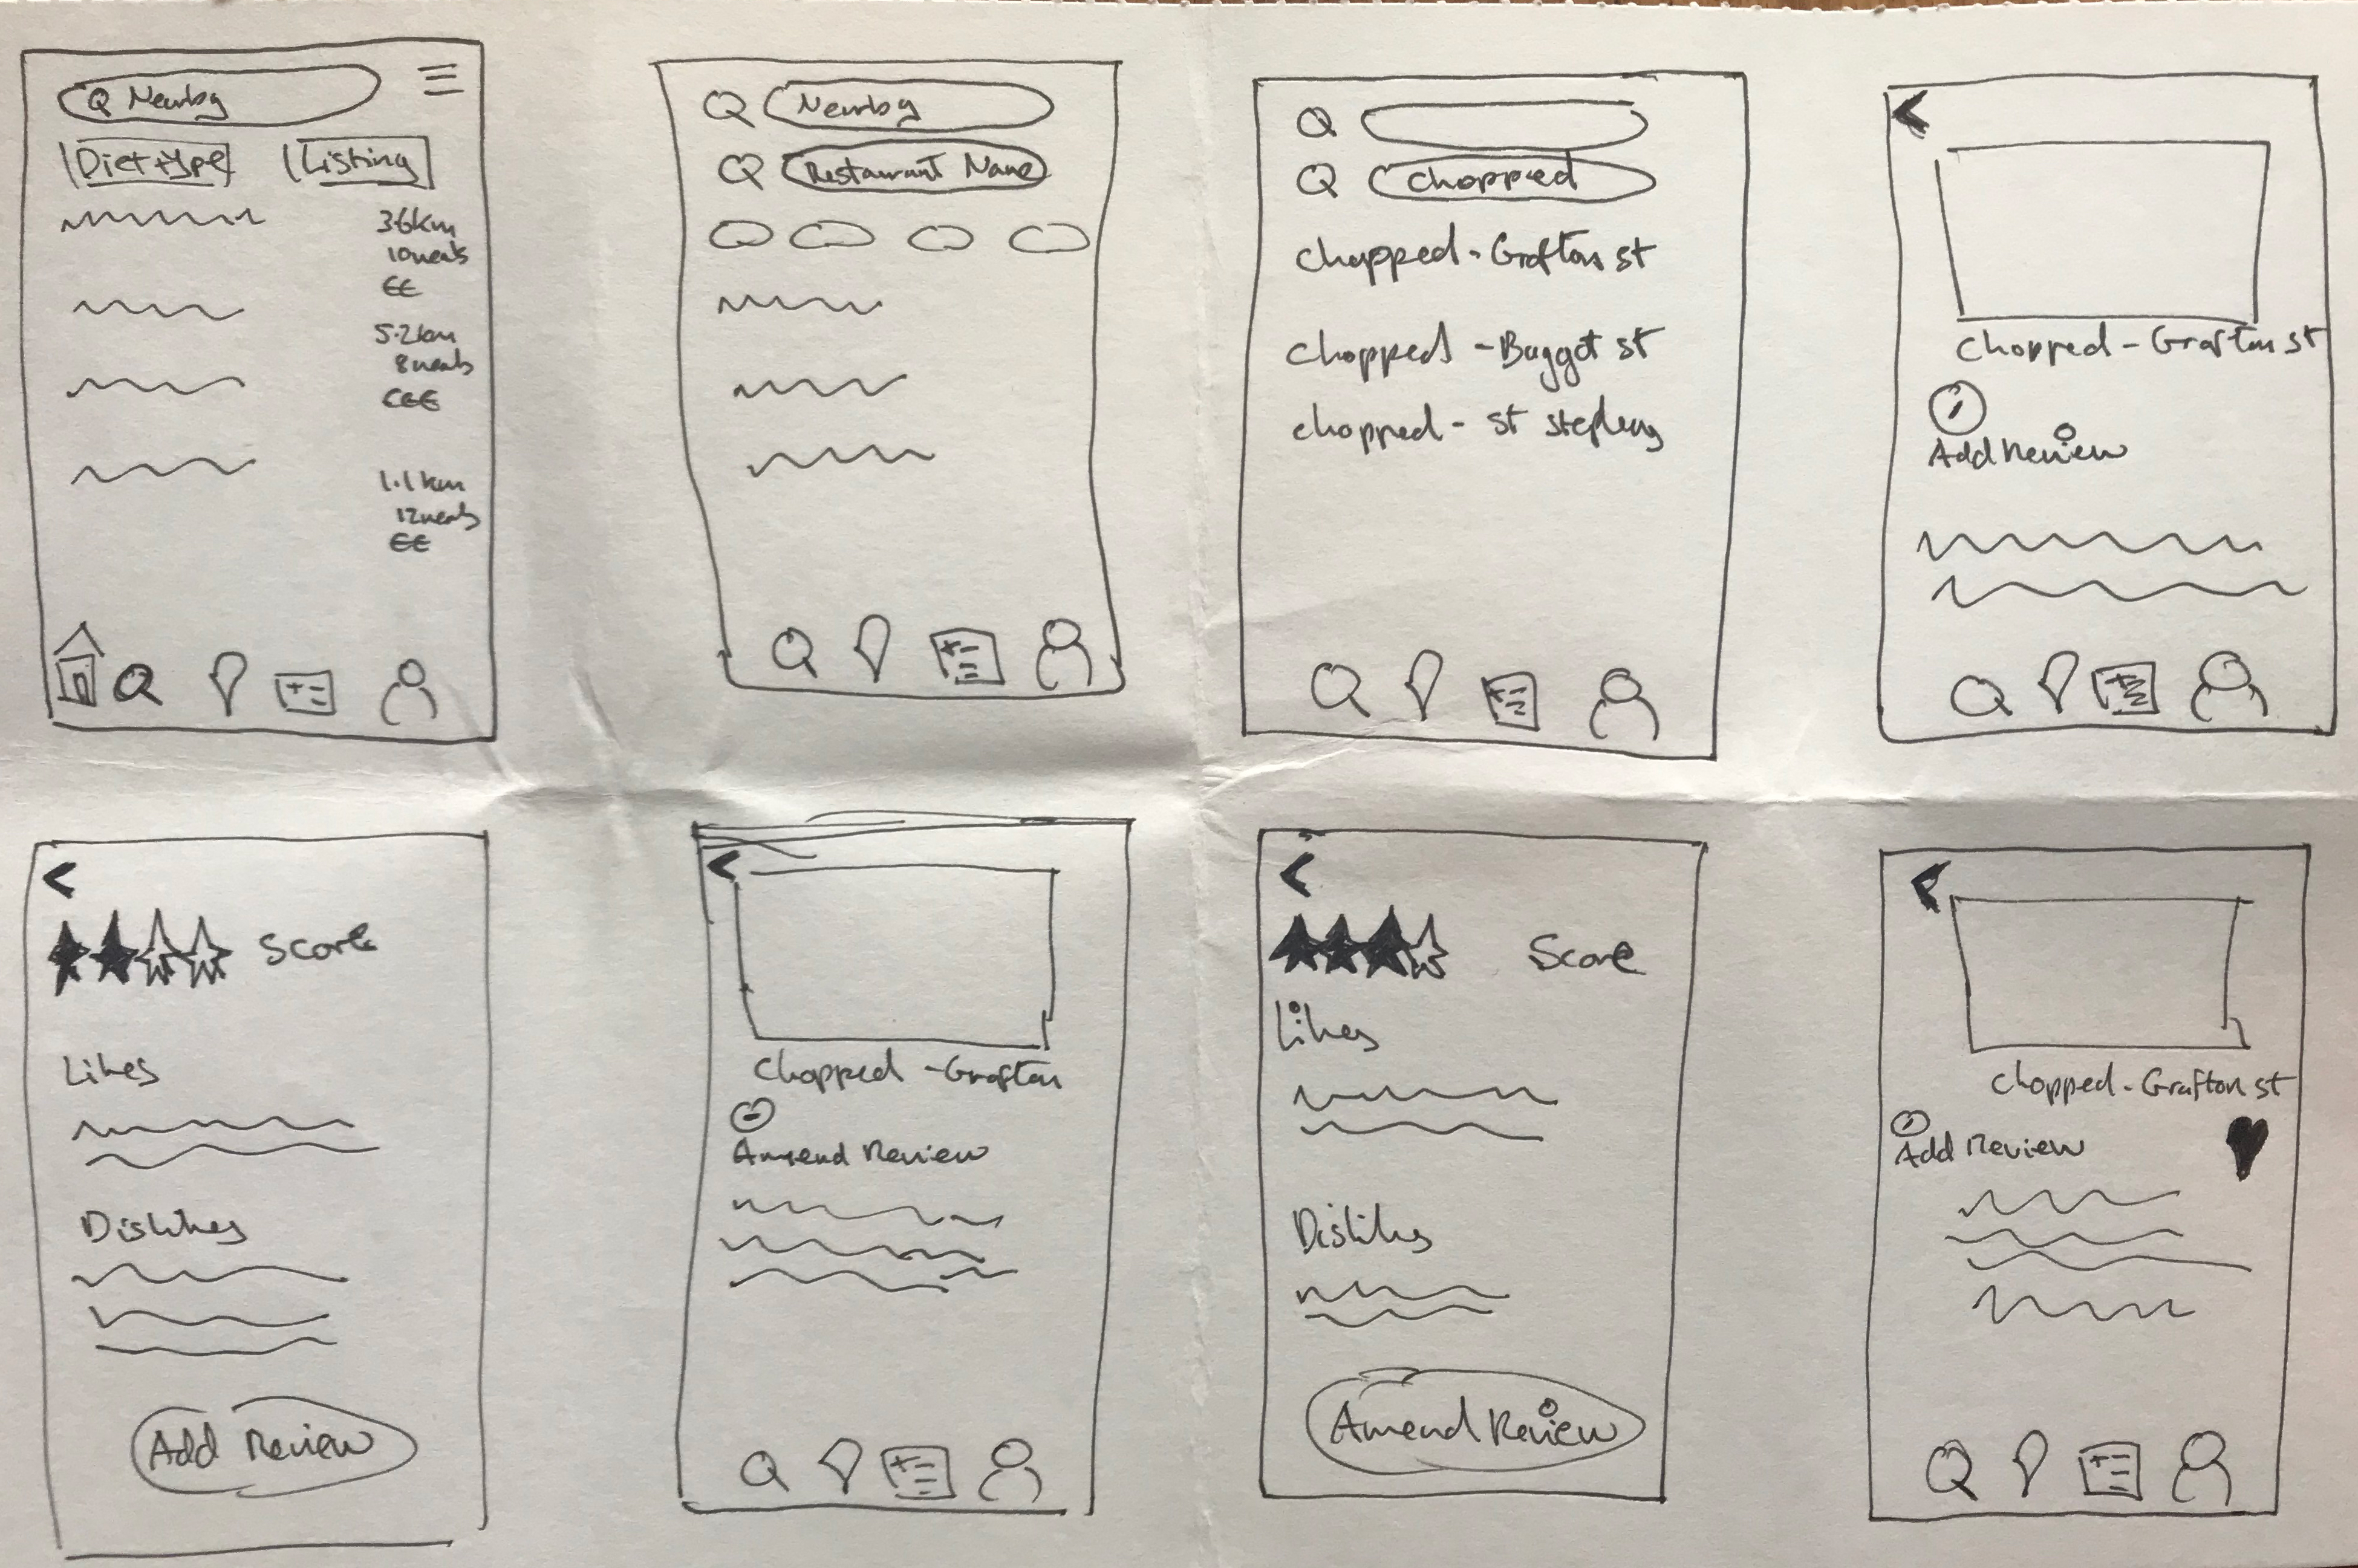 Nearby
Diet type Listing
3.6km
10 meals
€€
5.2km
8 meals
€€€
1.1km
12 meals
€€
Nearby
Restaurant Name
Chopped
Chopped - Grafton st
Chopped - Baggot st
Chopped - St Stephens
Chopped - Grafton st
Add Review
Score
Likes
Dislikes
Add Review
Chopped - Grafton
Amend Review
Score
Likes
Dislikes
Amend Review
Chopped - Grafton st
Add Review